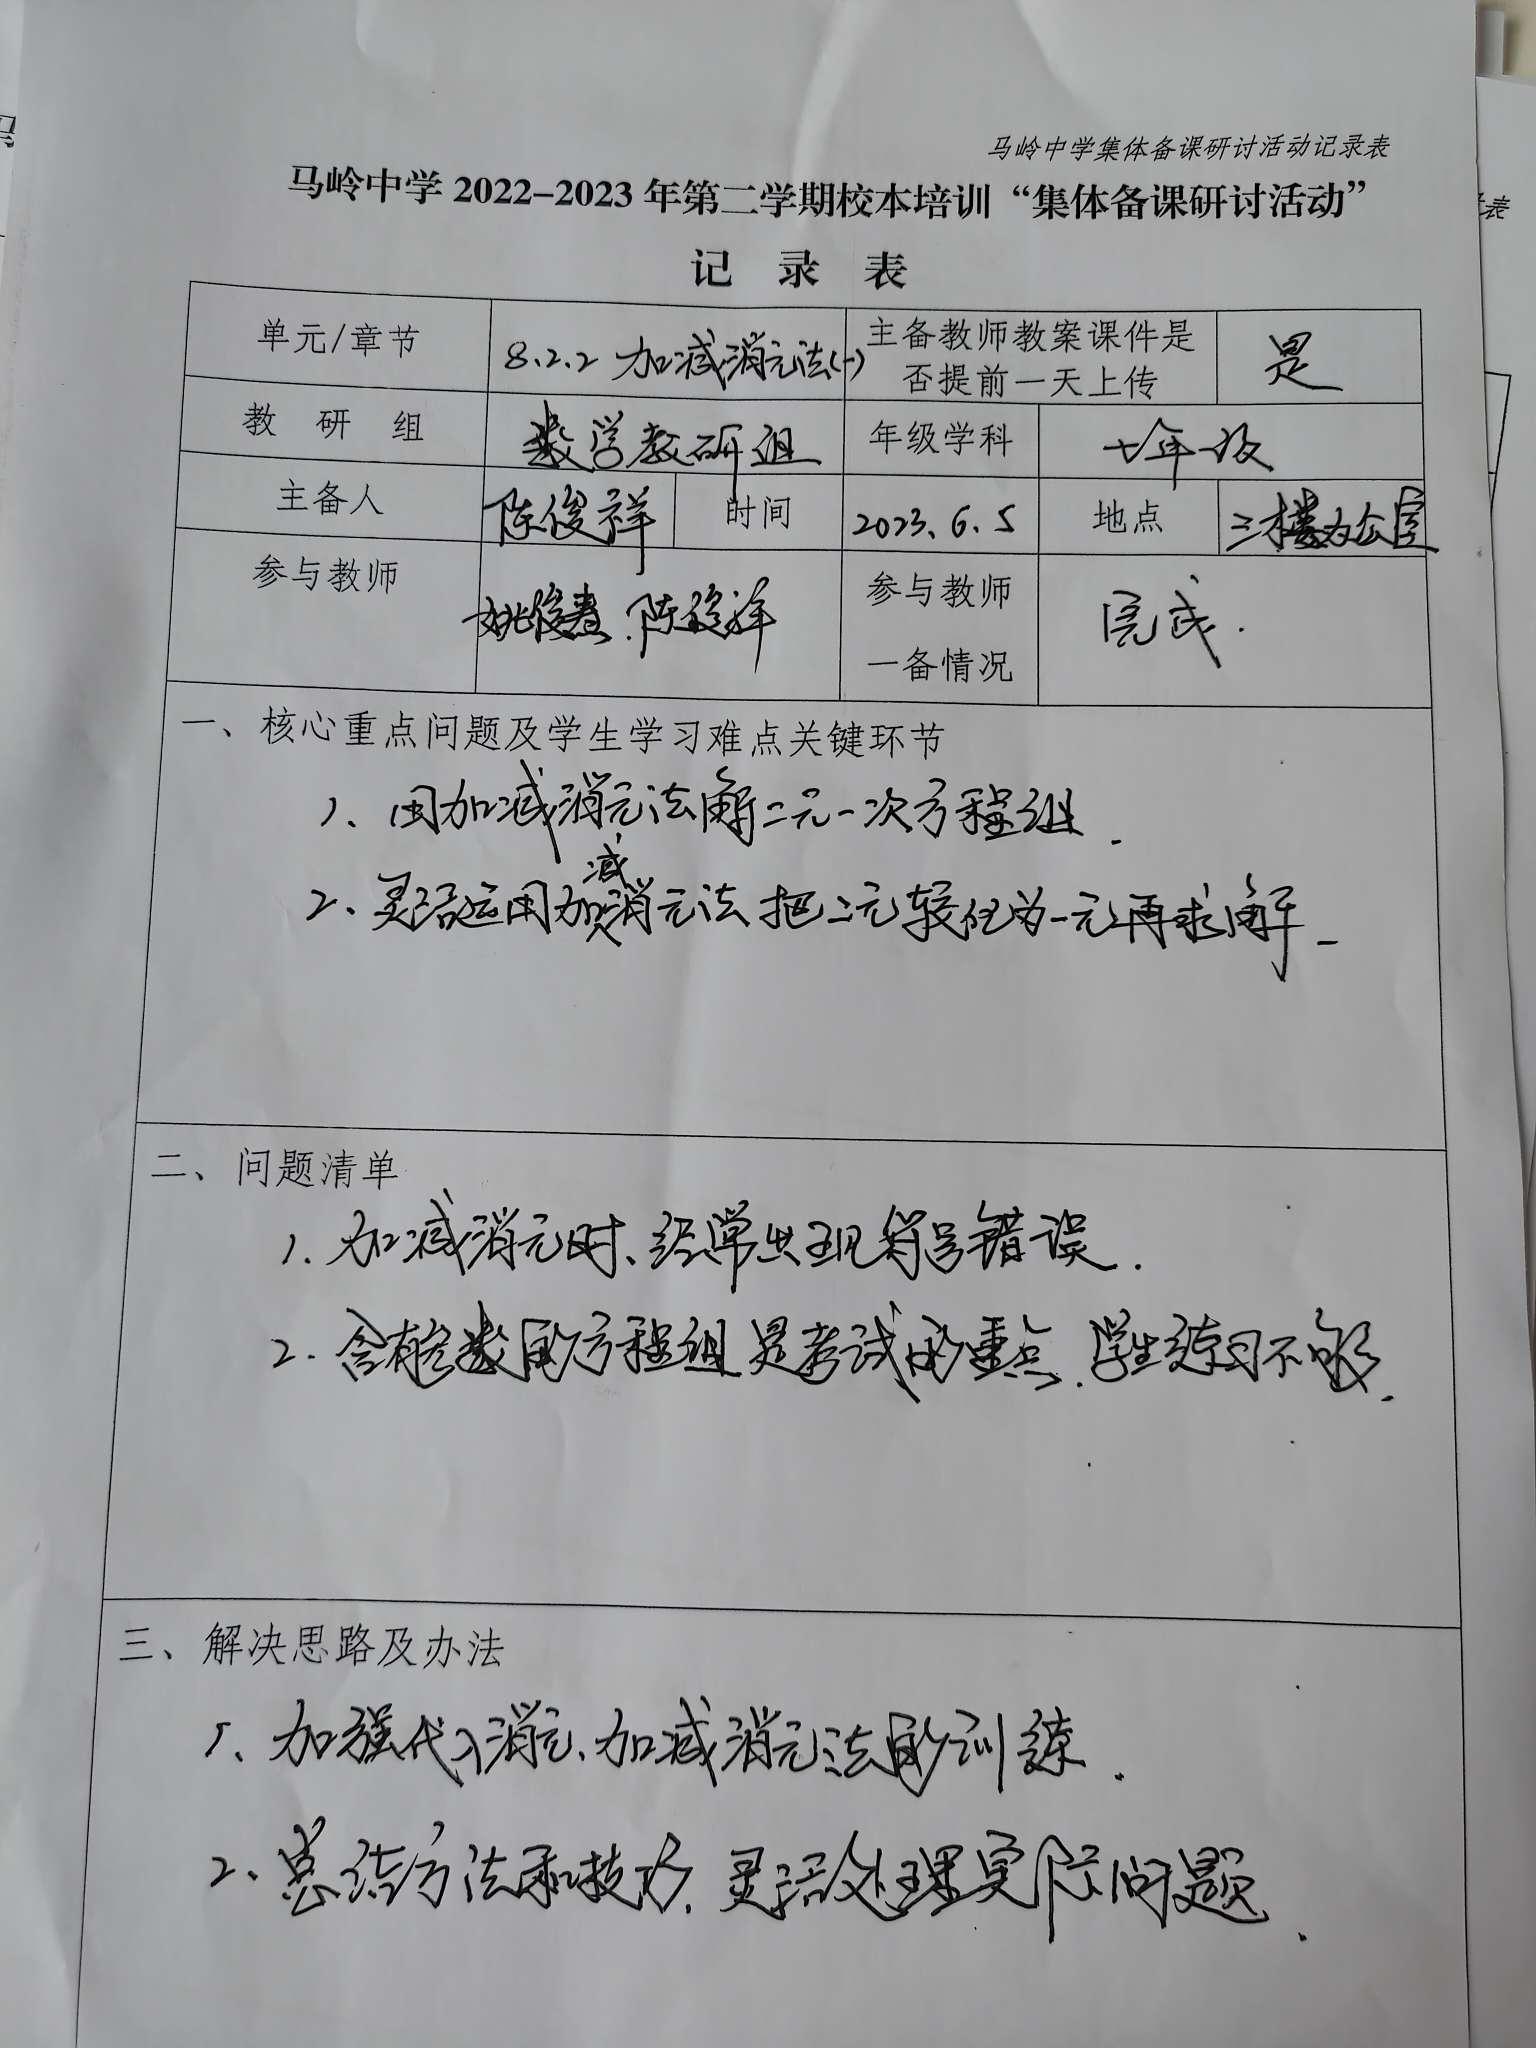 马岭中学集体备课研讨活动记录表
马岭中学 2022-2023 年第二学期校本培训“集体备课研讨活动”
记 录 表
单元/章节 8.2.2 加减消元法(一) 主备教师教案课件是否提前一天上传 是
教 研 组 数学教研组 年级学科 七年级
主备人 陈俊祥 时间 2023.6.5 地点 三楼办公室
参与教师 陈俊祥 参与教师一备情况 完成.
一、核心重点问题及学生学习难点关键环节
1、用加减消元法解二元一次方程组.
2、灵活运用加减消元法把二元转化为一元再求解.
二、问题清单
1.加减消元时、经常出现符号错误.
2.含有参数的方程组是考试的重点.学生练习不够.
三、解决思路及办法
1、加强代入消元、加减消元法的训练.
2、总结方法和技巧,灵活处理实际问题.